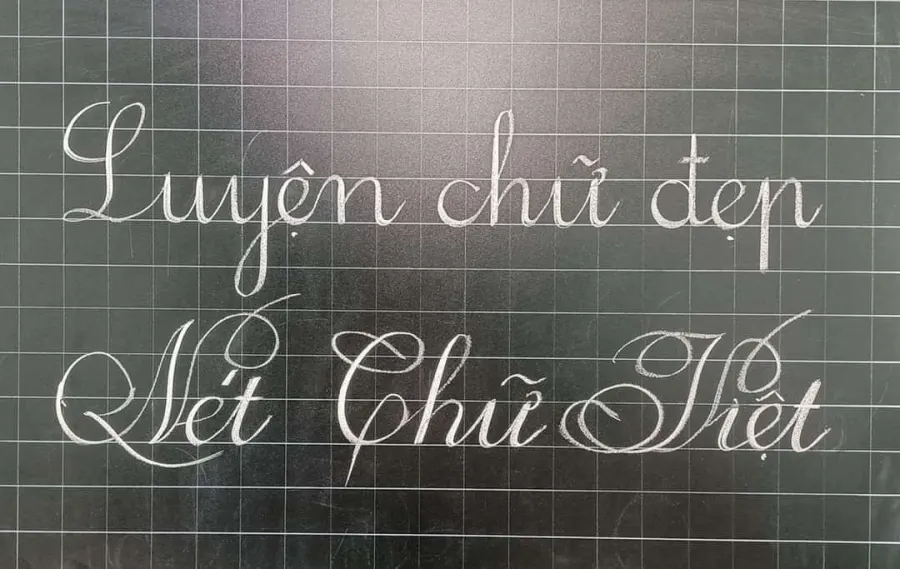 Luyện chữ đẹp
Nét Chữ Việt